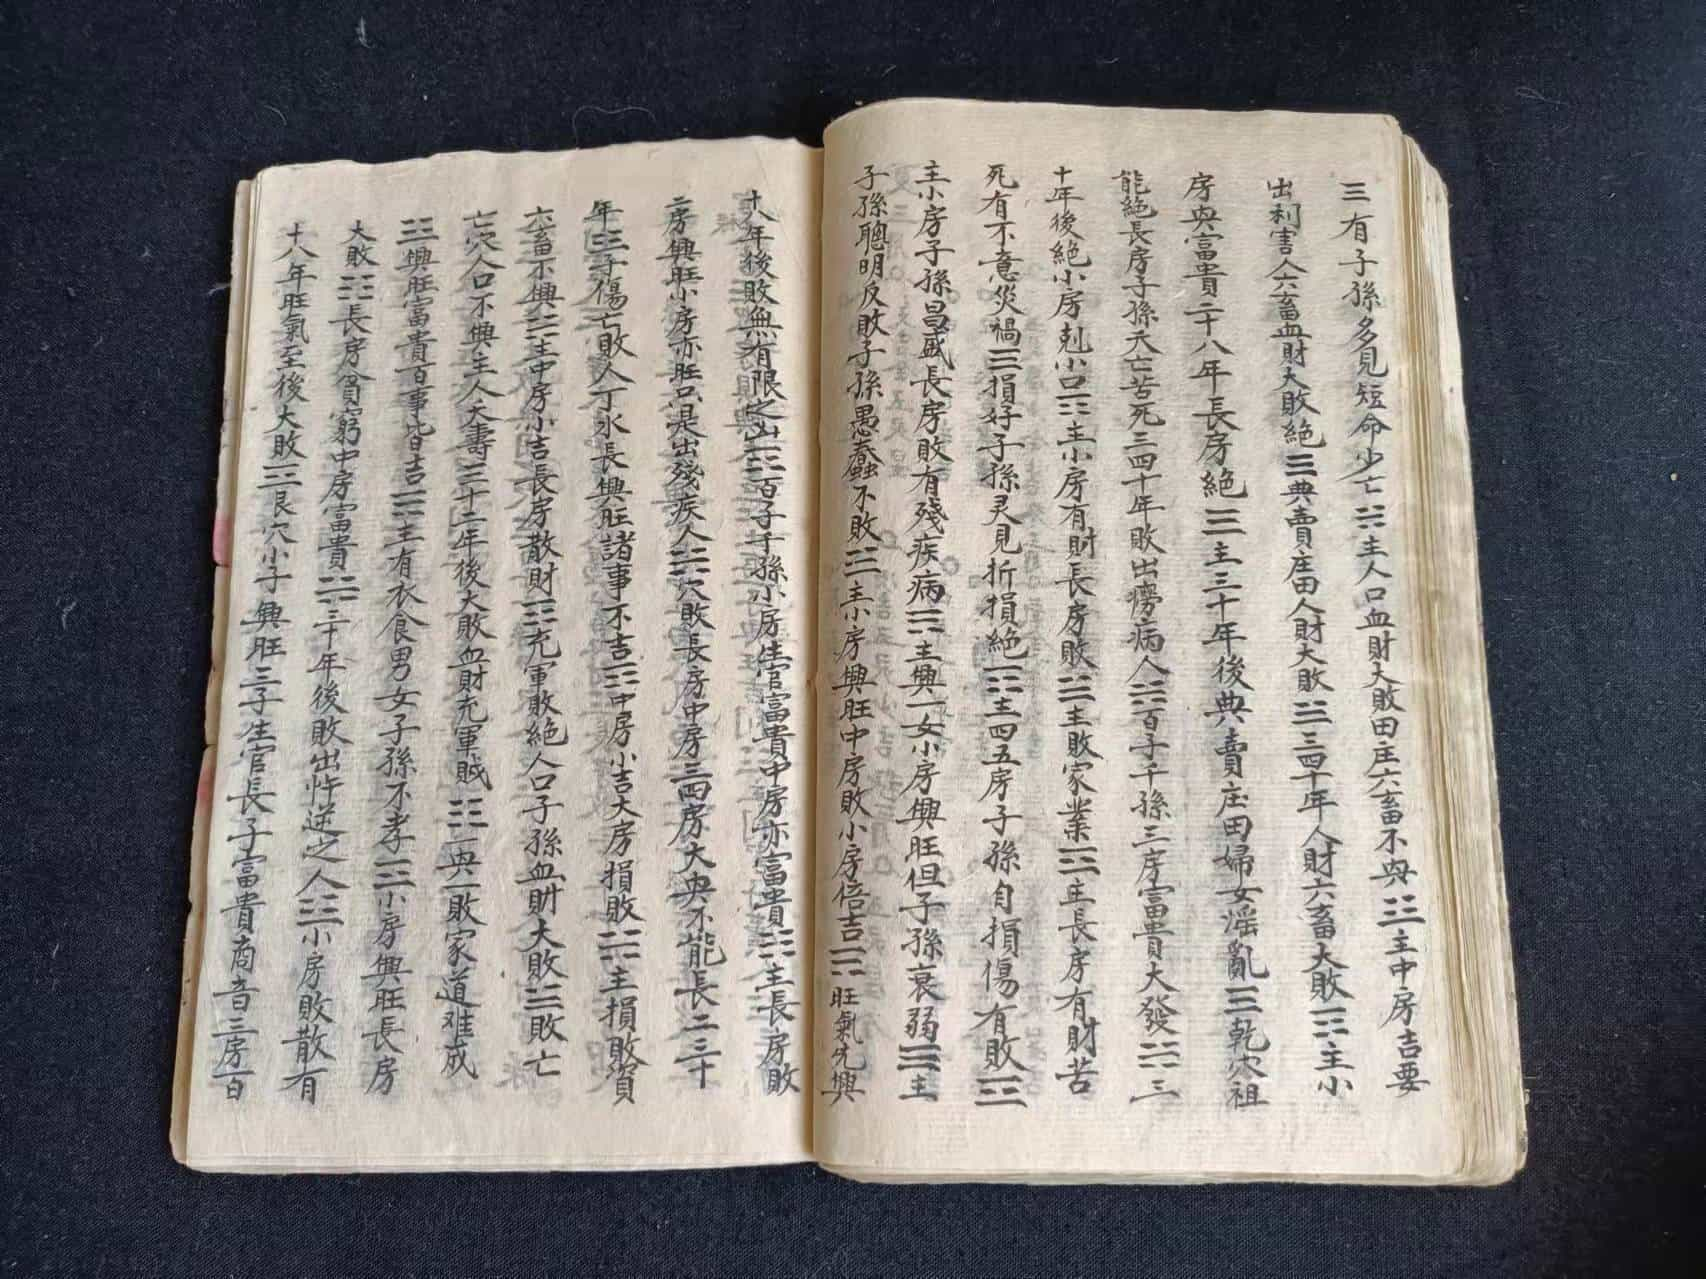 三有子孫多見短命少亡主人口血財大敗田庄六畜不興主中房吉要
出利害人六畜血財大敗絶典賣庄田人財大敗三四十年人財六畜大敗主小
房興富貴二十八年長房絶主三十年後典賣庄田婦女淫亂乾穴祖
能絶長房子孫夭亡苦死三四十年敗出癆病人百子千孫三房富貴大發三
十年後絶小房剋小口主小房有財長房敗主敗家業主長房有財苦
死有不意災禍損好子孫灵見折損絶主四五房子孫自損傷有敗
主小房子孫昌盛長房敗有殘疾病主興一女小房興旺但子孫衰弱主
子孫聰明反敗子孫愚蠢不敗主小房興旺中房敗小房倍吉旺氣先興
十八年後敗無有限之山百子千孫小房生官富貴中房亦富貴主長房敗
二房興旺小房亦旺只是出殘疾人穴敗長房中房三四房大興不能長二三十
年三子傷亡敗人丁水長興旺諸事不吉中房小吉大房損敗主損敗貧
六畜不興主中房小吉長房散財充軍敗絶人口子孫血財大敗敗亡
亡穴人口不興主人夭壽三十二年後大敗血財充軍賊興一敗家道难成
興旺富貴百事皆吉主有衣食男女子孫不孝小房興旺長房
大敗長房貧窮中房富貴三十年後敗出忤逆之人小房敗散有
十八年旺氣至後大敗艮穴小子興旺三子生官長子富貴商音三房百